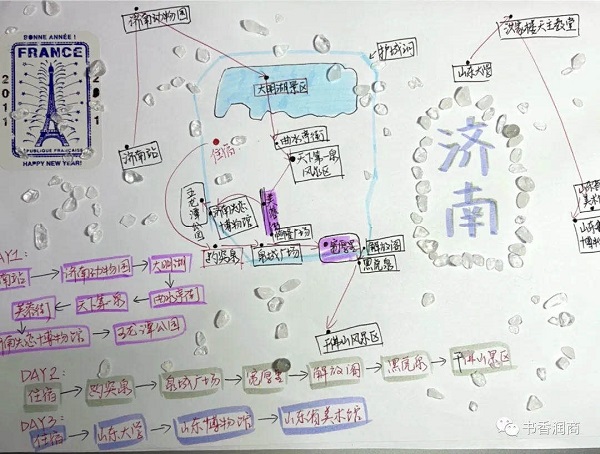 济南动物园
洪家楼天主教堂
BONNE ANNÉE!
FRANCE
2011
2011
RÉPUBLIQUE FRANÇAISE
HAPPY NEW YEAR!
护城河
山东大学
大明湖景区
曲水亭街
济南站
住宿
天下第一泉
风景区
济南
五龙潭公园
芙蓉街
泉城广场
宽厚里
解放阁
黑虎泉
趵突泉
千佛山风景区
DAY1:
济南动物园 → 大明湖
芙蓉街 天下第一泉 曲水亭街
博物馆 → 五龙潭公园
DAY2:
住宿 → 趵突泉 → 泉城广场 → 宽厚里 → 解放阁 → 黑虎泉 → 千佛山景区
DAY3:
住宿 → 山东大学 → 山东博物馆 → 山东省美术馆
书香润商